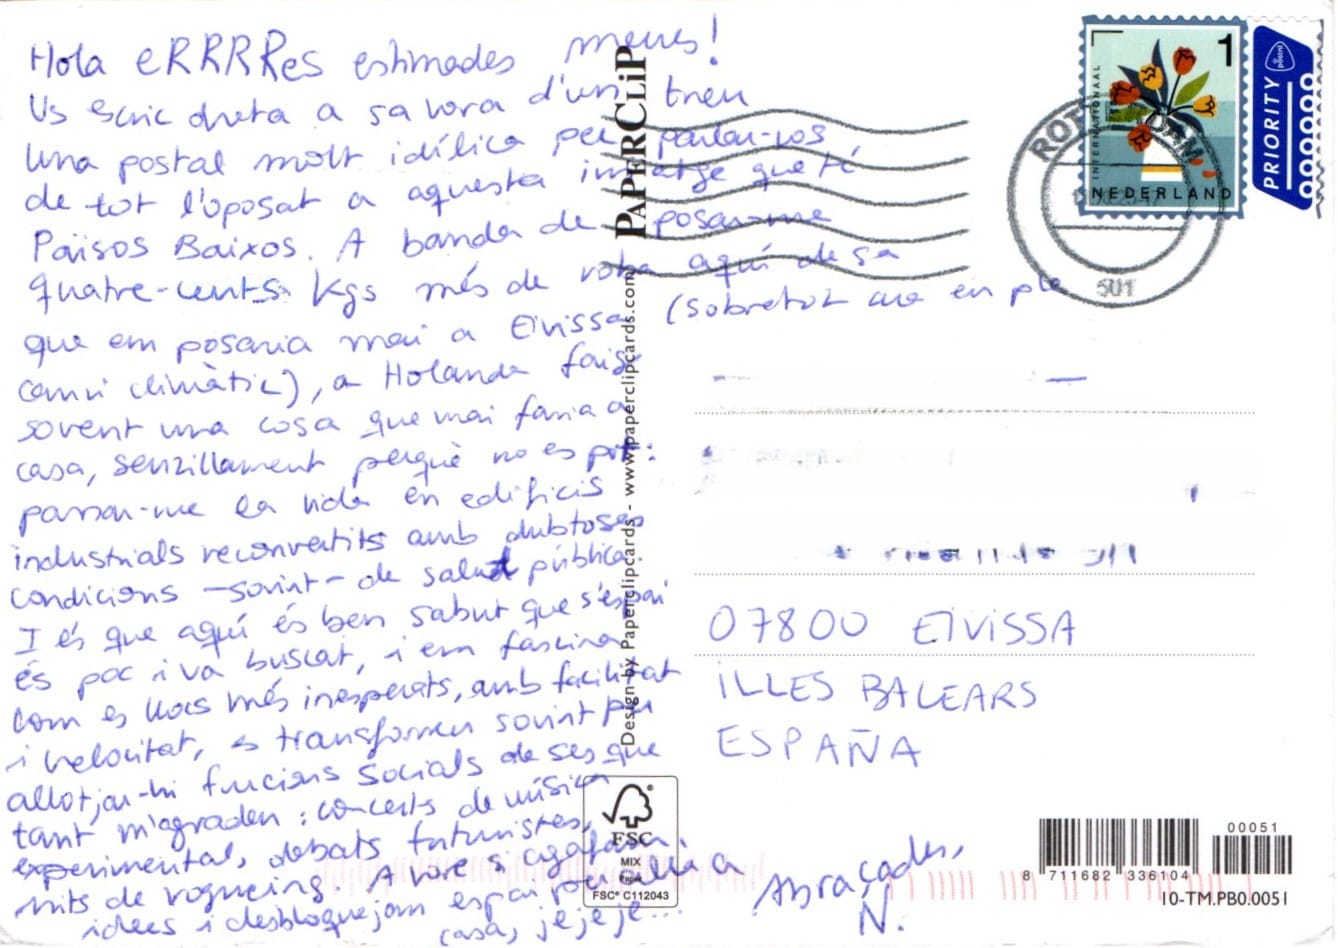 Hola eRRRRes estimades meues!
Us escric dreta a sa vora d'un treu
una postal molt idíl·lica per parlar-vos
de tot l'oposat a aquesta imatge que té
Països Baixos. A banda de posar-me
quatre-cents kgs més de roba aquí de sa
que em posaria mai a Eivissa (sobretot ara en ple
canvi climàtic), a Holanda faig
sovent una cosa que mai faria a
casa, senzillament perquè no es pot:
passar-me la vida en edificis
industrials reconvertits amb dubtoses
condicions -sovint- de salut pública.
I és que aquí és ben sabut que s'espai
és poc i va buscat, i em fascina
com es llocs més inesperats, amb facilitat
i velocitat, es transformen sovint per
allotjar-hi funcions socials de ses que
tant m'agraden: concerts de música
experimental, debats futuristes,
nits de vogueing. A vore si agafam
idees i desbloquejam espai per allà a
casa, jejeje...
Abraçades,
N.
PAPERCLIP
Design by Paperclipcards - www.paperclipcards.com
1
INTERNATIONAAL
NEDERLAND
PRIORITY
postnl
ROTTERDAM
501
07800 EIVISSA
ILLES BALEARS
ESPAÑA
FSC
MIX
Paper
FSC® C112043
00051
8 711682 336104
10-TM.PB0.0051